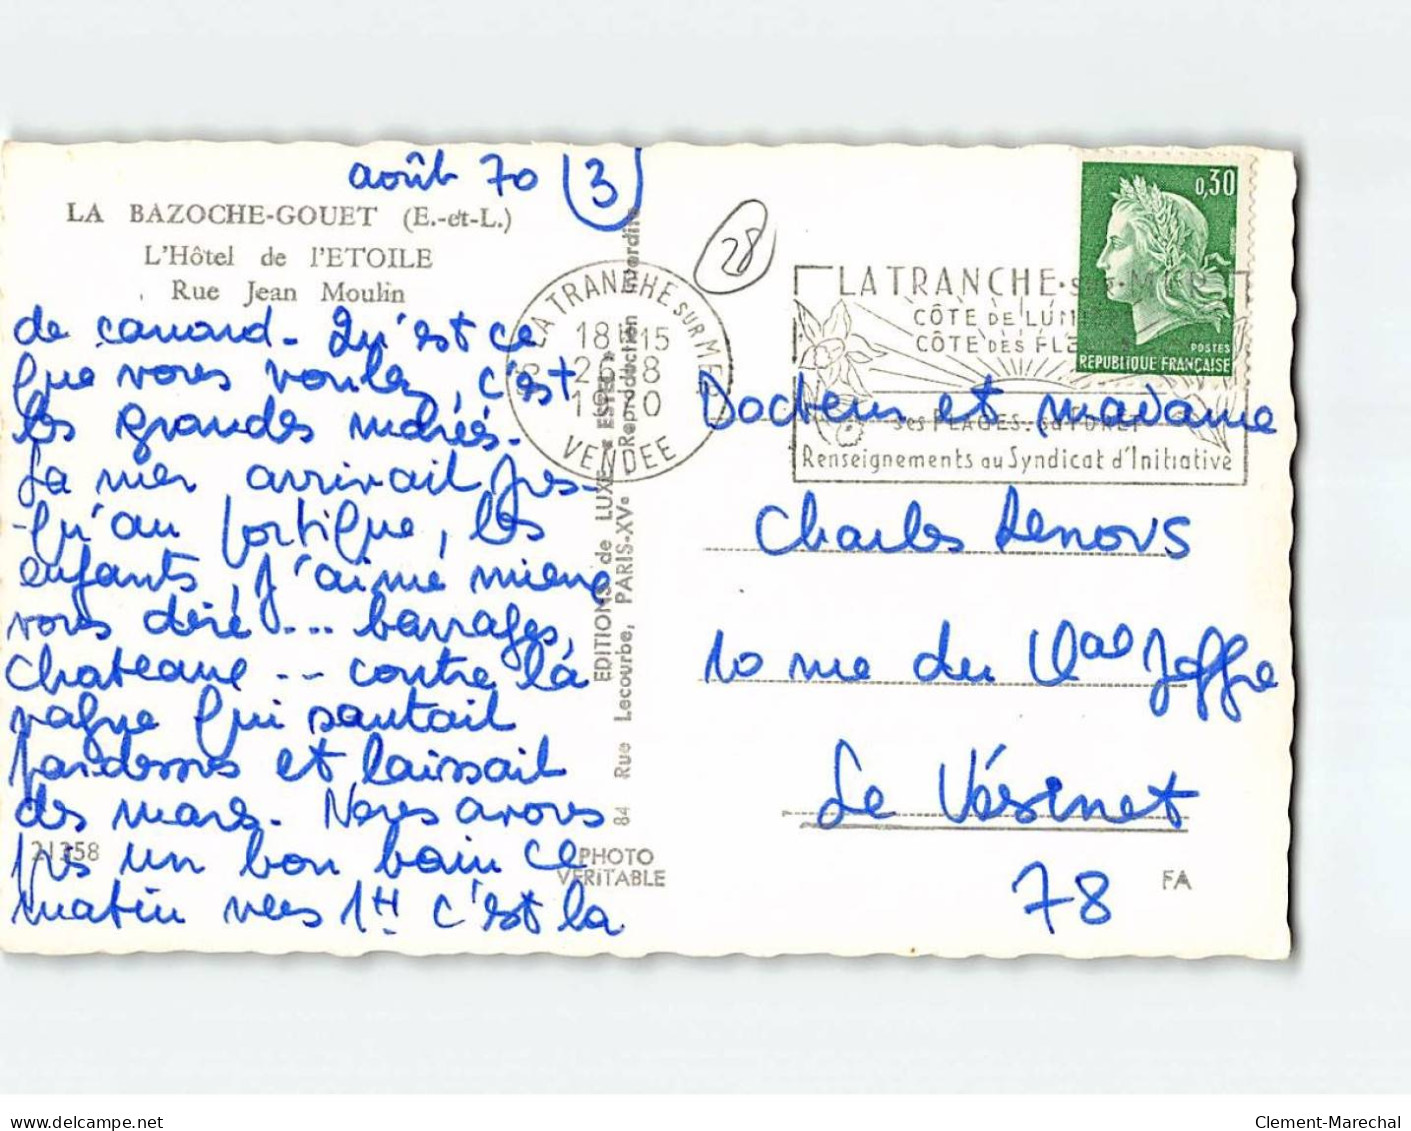 août 70 3
LA BAZOCHE-GOUET (E.-et-L.)
L'Hôtel de l'ETOILE
Rue Jean Moulin
de canard. Qu'est ce
que vous voulez, c'est
les grandes marées.
La mer arrivait jus-
-qu'au portique, les
enfants, j'aime mieux
vous dire ... barrages,
chateaux ... contre la
vague qui sautait
pardessus et laissait
des mares. Nous avons
pris un bon bain ce
matin vers 1H c'est la
21358
EDITIONS de LUXE « ESTEL »
84 Rue Lecourbe, PARIS-XVe Reproduction interdite
PHOTO
VERITABLE
28
LA TRANCHE SUR MER
18H15
26-8
1970
VENDEE
LA TRANCHE-sur-MER
CÔTE DE LUMI
CÔTE DES FLE
ses PLAGES, sa FORET
Renseignements au Syndicat d'Initiative
0,30
POSTES
REPUBLIQUE FRANÇAISE
Docteur et madame
Charles Lenovs
10 rue du Mal Joffre
Le Vésinet
78
FA
delcampe.net
Clement-Marechal